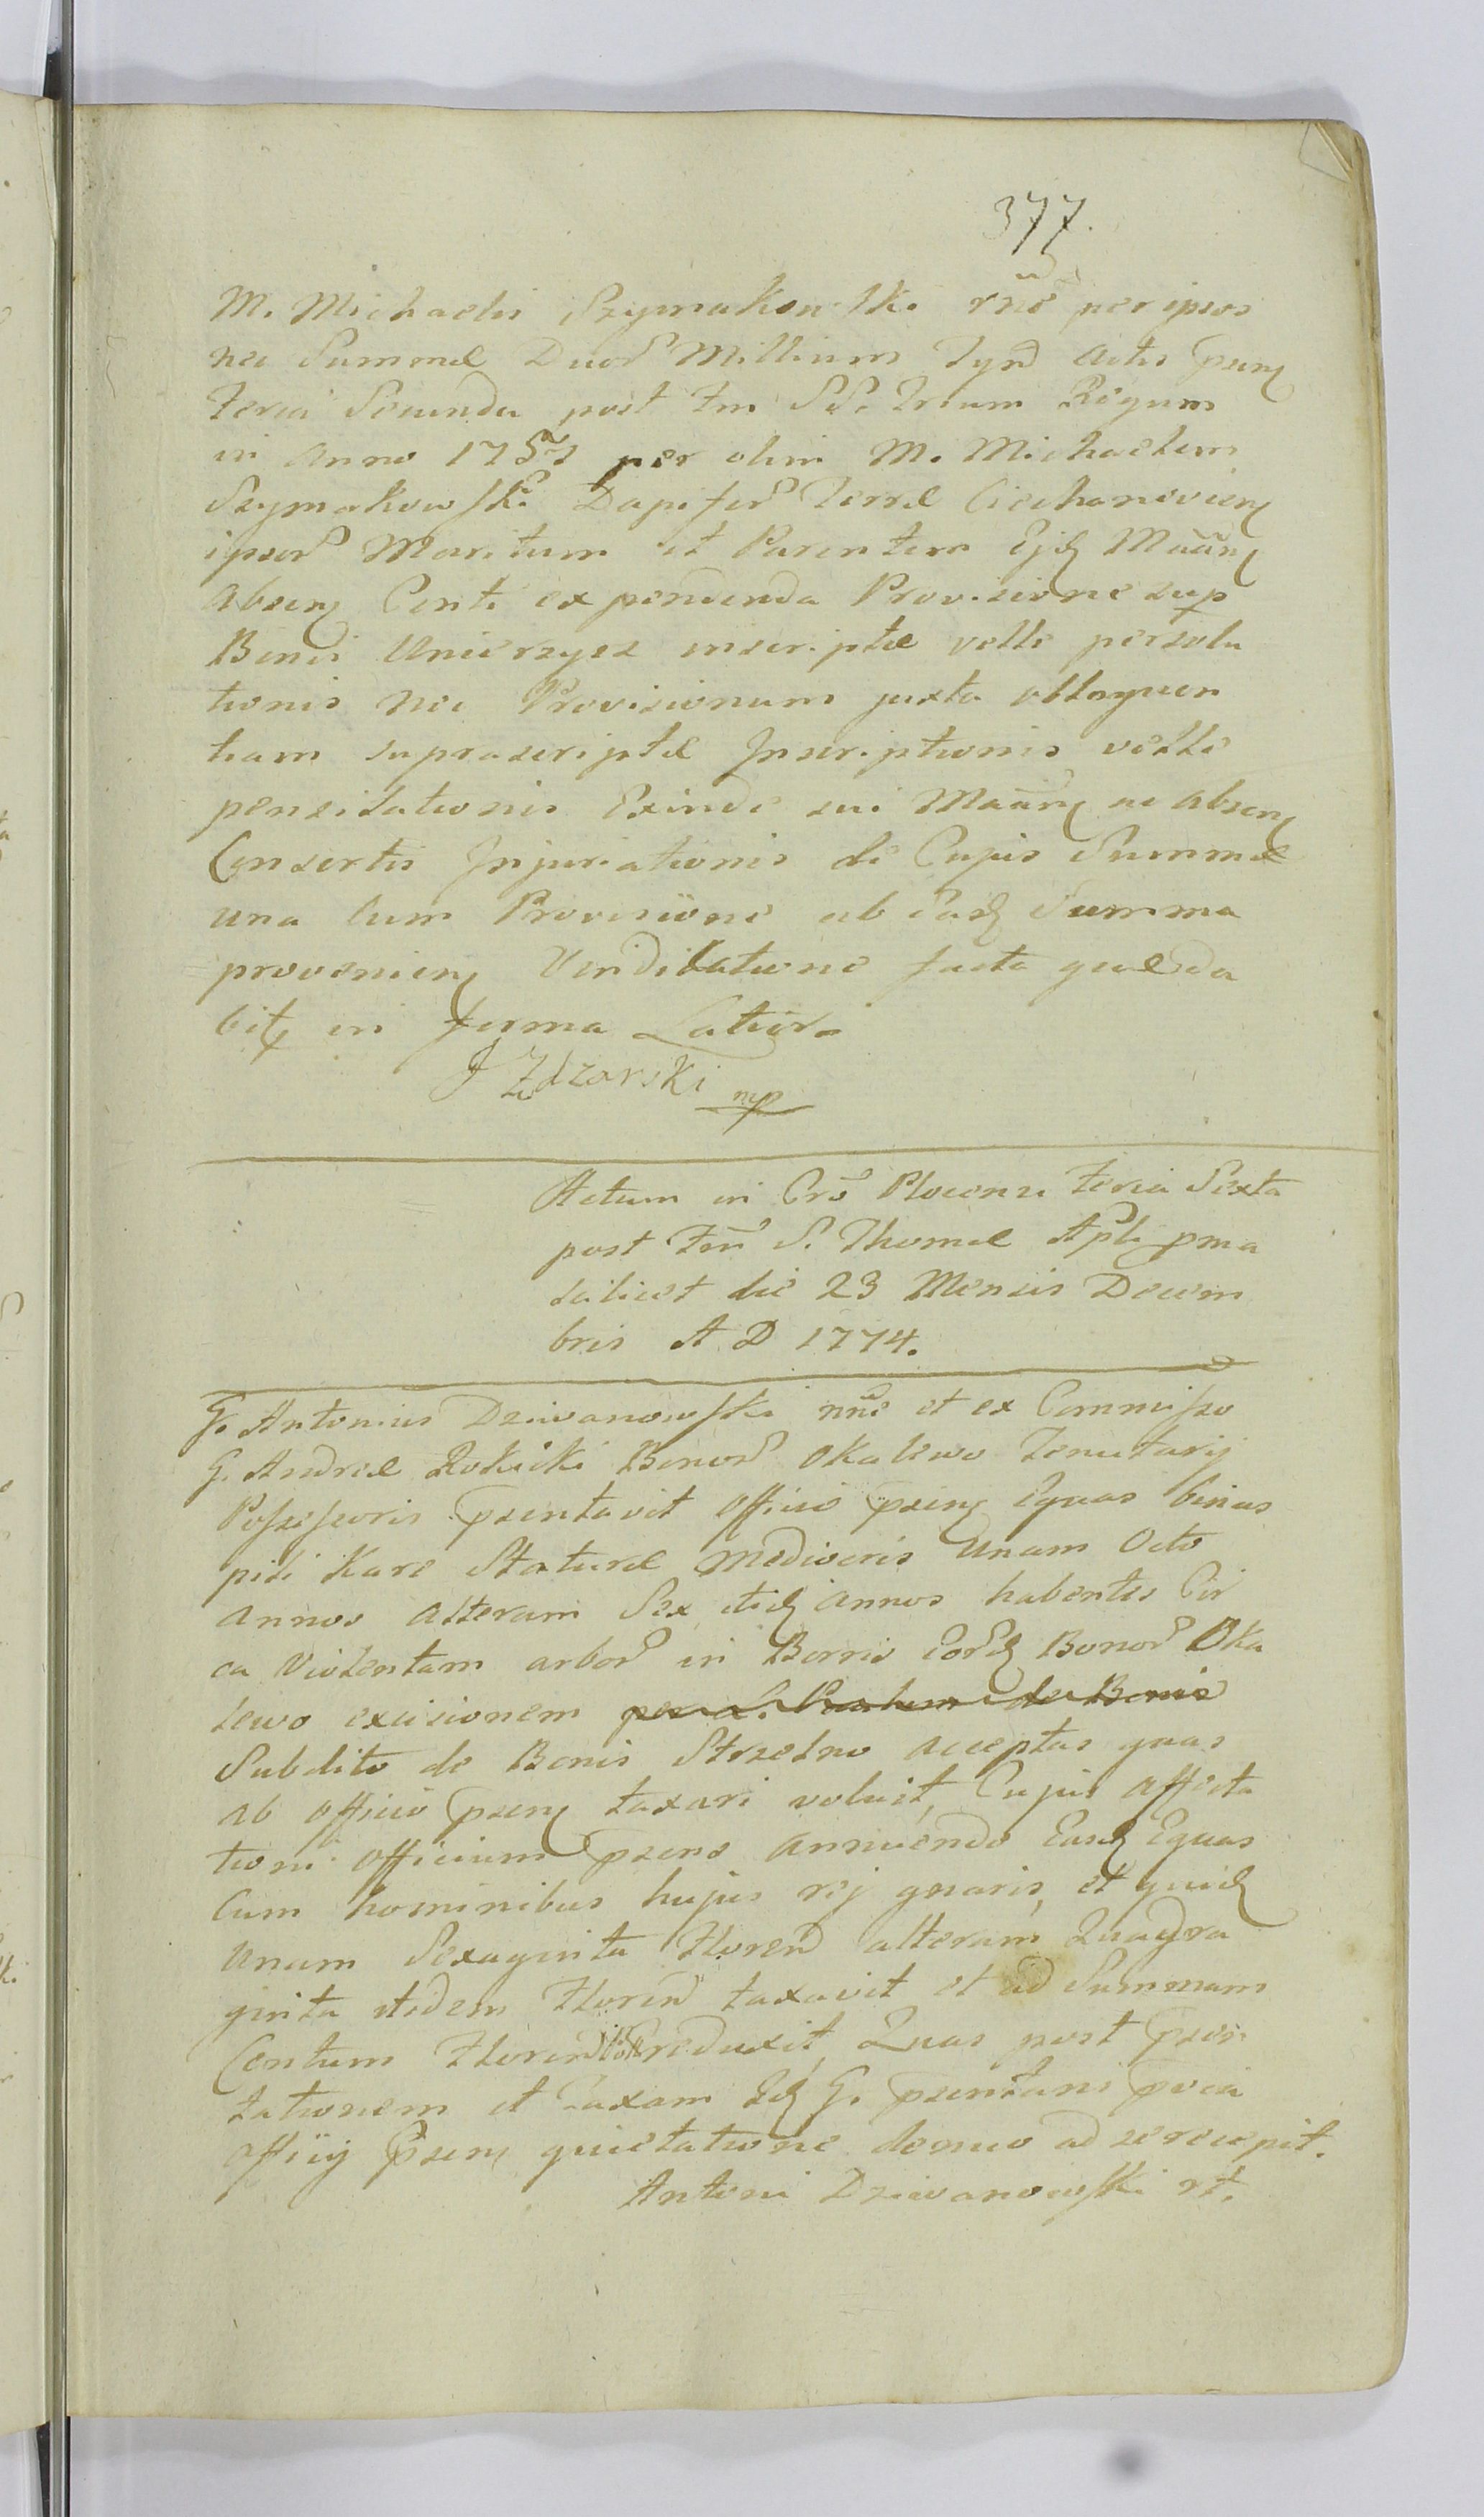 377.
M. Michaelis Szymakowski rne per ipsos
nei Summæ Duor Millium Tynf Actis psen
Feria Secunda post Fm SS. Trium Regum
in Anno 1757 per olim M. Michaelem
Szymakowski Dapifer Terræ Ciechanovien
ipsor Maritum et Parentem Ejd Maan
absen Centi expendenda Provisione sup
Bonis Unierzysz inscriptæ velle persolu
tionis nei Provisionum juxta obloquen
tiam suprascriptæ Inscriptionis velle
pensitationis Exinde sui Maan ac absen
Consortis Injuriationis de Cujus Summæ
una Cum Provisione ab Ead Summa
provenien Vendicatione facta quæda
bit in forma Latiori
J Zdzarski mp
Actum in Cro Plocensi Feria Sexta
post Fm S. Thomæ Apli pma
scilicet die 23 Mensis Decem
bris A D 1774.
G. Antonius Dziwanowski nne et ex Commisso
G. Andreæ Rokicki Bonor Okalewo Tenutarij
Possessoris psentavit Officio psen Equas binas
pili Kare Staturæ Mediocris Unam Octo
annos alteram Sex itid annos habentes Cir
ca Violentam arbor in Borris Eord Bonor Oka
lewo excisionem per de Bonis
Subdito de Bonis Strzelno acceptas quas
ab Officio psen taxari voluit, Cujus affecta
tioni Officium psens annuendo Easd Equas
Cum hominibus hujus rej gnaris, et quid
unam Sexaginta Floren alteram Quadra
ginta itidem Floren taxavit et ad Summam
Centum Floren reduxit, Quas post psen
tationem et Taxam Id G. psentans pvia
Offiij Psen quietatione denuo ad se recepit.
Antoni Dziwanowski rt.